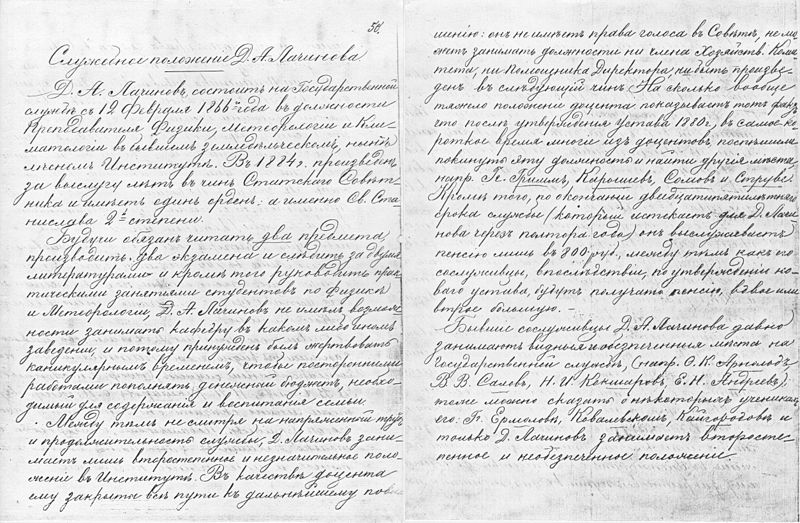 50.
Служебное положеніе Д. А. Лачинова
Д. А. Лачиновъ, состоитъ на Государственной
службѣ съ 12 Февраля 1866 года въ должности
Преподавателя Физики, Метеорологіи и Кли-
матологіи въ бывшемъ земледѣльческомъ, нынѣ
лѣсномъ Институтѣ. Въ 1884 г. произведенъ
за выслугу лѣтъ въ чинъ Статскаго Совѣт-
ника и имѣетъ одинъ орденъ: а именно Св. Ста-
нислава 2й степени.
Будучи обязанъ читать два предмета
производить два экзамена и слѣдить за двумя
литературами и кромѣ того руководить прак-
тическими занятіями студентовъ по Физикѣ
и Метеорологіи, Д. А. Лачиновъ не имѣлъ возмож-
ности занимать каѳедру въ какомъ либо иномъ
заведеніи, и потому принужденъ былъ жертвовать
каникулярнымъ временемъ, чтобы посторонними
работами пополнять денежный бюджетъ, необхо-
димый для содержанія и воспитанія семьи.
Между тѣмъ не смотря на напряженный трудъ
и продолжительность службы, Д. Лачиновъ зани-
маетъ лишь второстепенное и незначительное поло-
женіе въ Институтѣ. Въ качествѣ доцента
ему закрыты всѣ пути къ дальнѣйшему повы-
шенію: онъ не имѣетъ права голоса въ Совѣтѣ, не мо-
жетъ занимать должности ни члена Хозяйств. Коми-
тета, ни Помощника Директора, ни быть произве-
денъ въ слѣдующій чинъ. На сколько вообще
тяжело положеніе доцента показываетъ тотъ фактъ,
что послѣ утвержденія Устава 1880 г., въ самое ко-
роткое время многіе изъ доцентовъ, поспѣшили
покинуть эту должность и найти другія мѣста,
напр. Гг. Гриммъ, Карышевъ, Сомовъ и Струве.
Кромѣ того, по окончаніи двадцатипятилѣтняго
срока службы (который истекаетъ для Д. Лачи-
нова черезъ полтора года) онъ выслуживаетъ
пенсію лишь въ 800 руб., между тѣмъ какъ его
сослуживцы, впослѣдствіи, по утвержденіи но-
ваго устава, будутъ получать пенсію, вдвое или
втрое большую. —
Бывшіе сослуживцы Д. А. Лачинова давно
занимаютъ видныя и обезпеченныя мѣста на
Государственной службѣ, (напр. Ѳ. К. Арнольдъ,
В. В. Саловъ, Н. И. Кокшаровъ, Е. Н. Андреевъ),
тоже можно сказать о нѣкоторыхъ ученикахъ
его: Гг. Ермоловѣ, Ковалевскомъ, Кайгородовѣ и
только Д. Лачиновъ занимаетъ второсте-
пенное и необезпеченное положеніе.